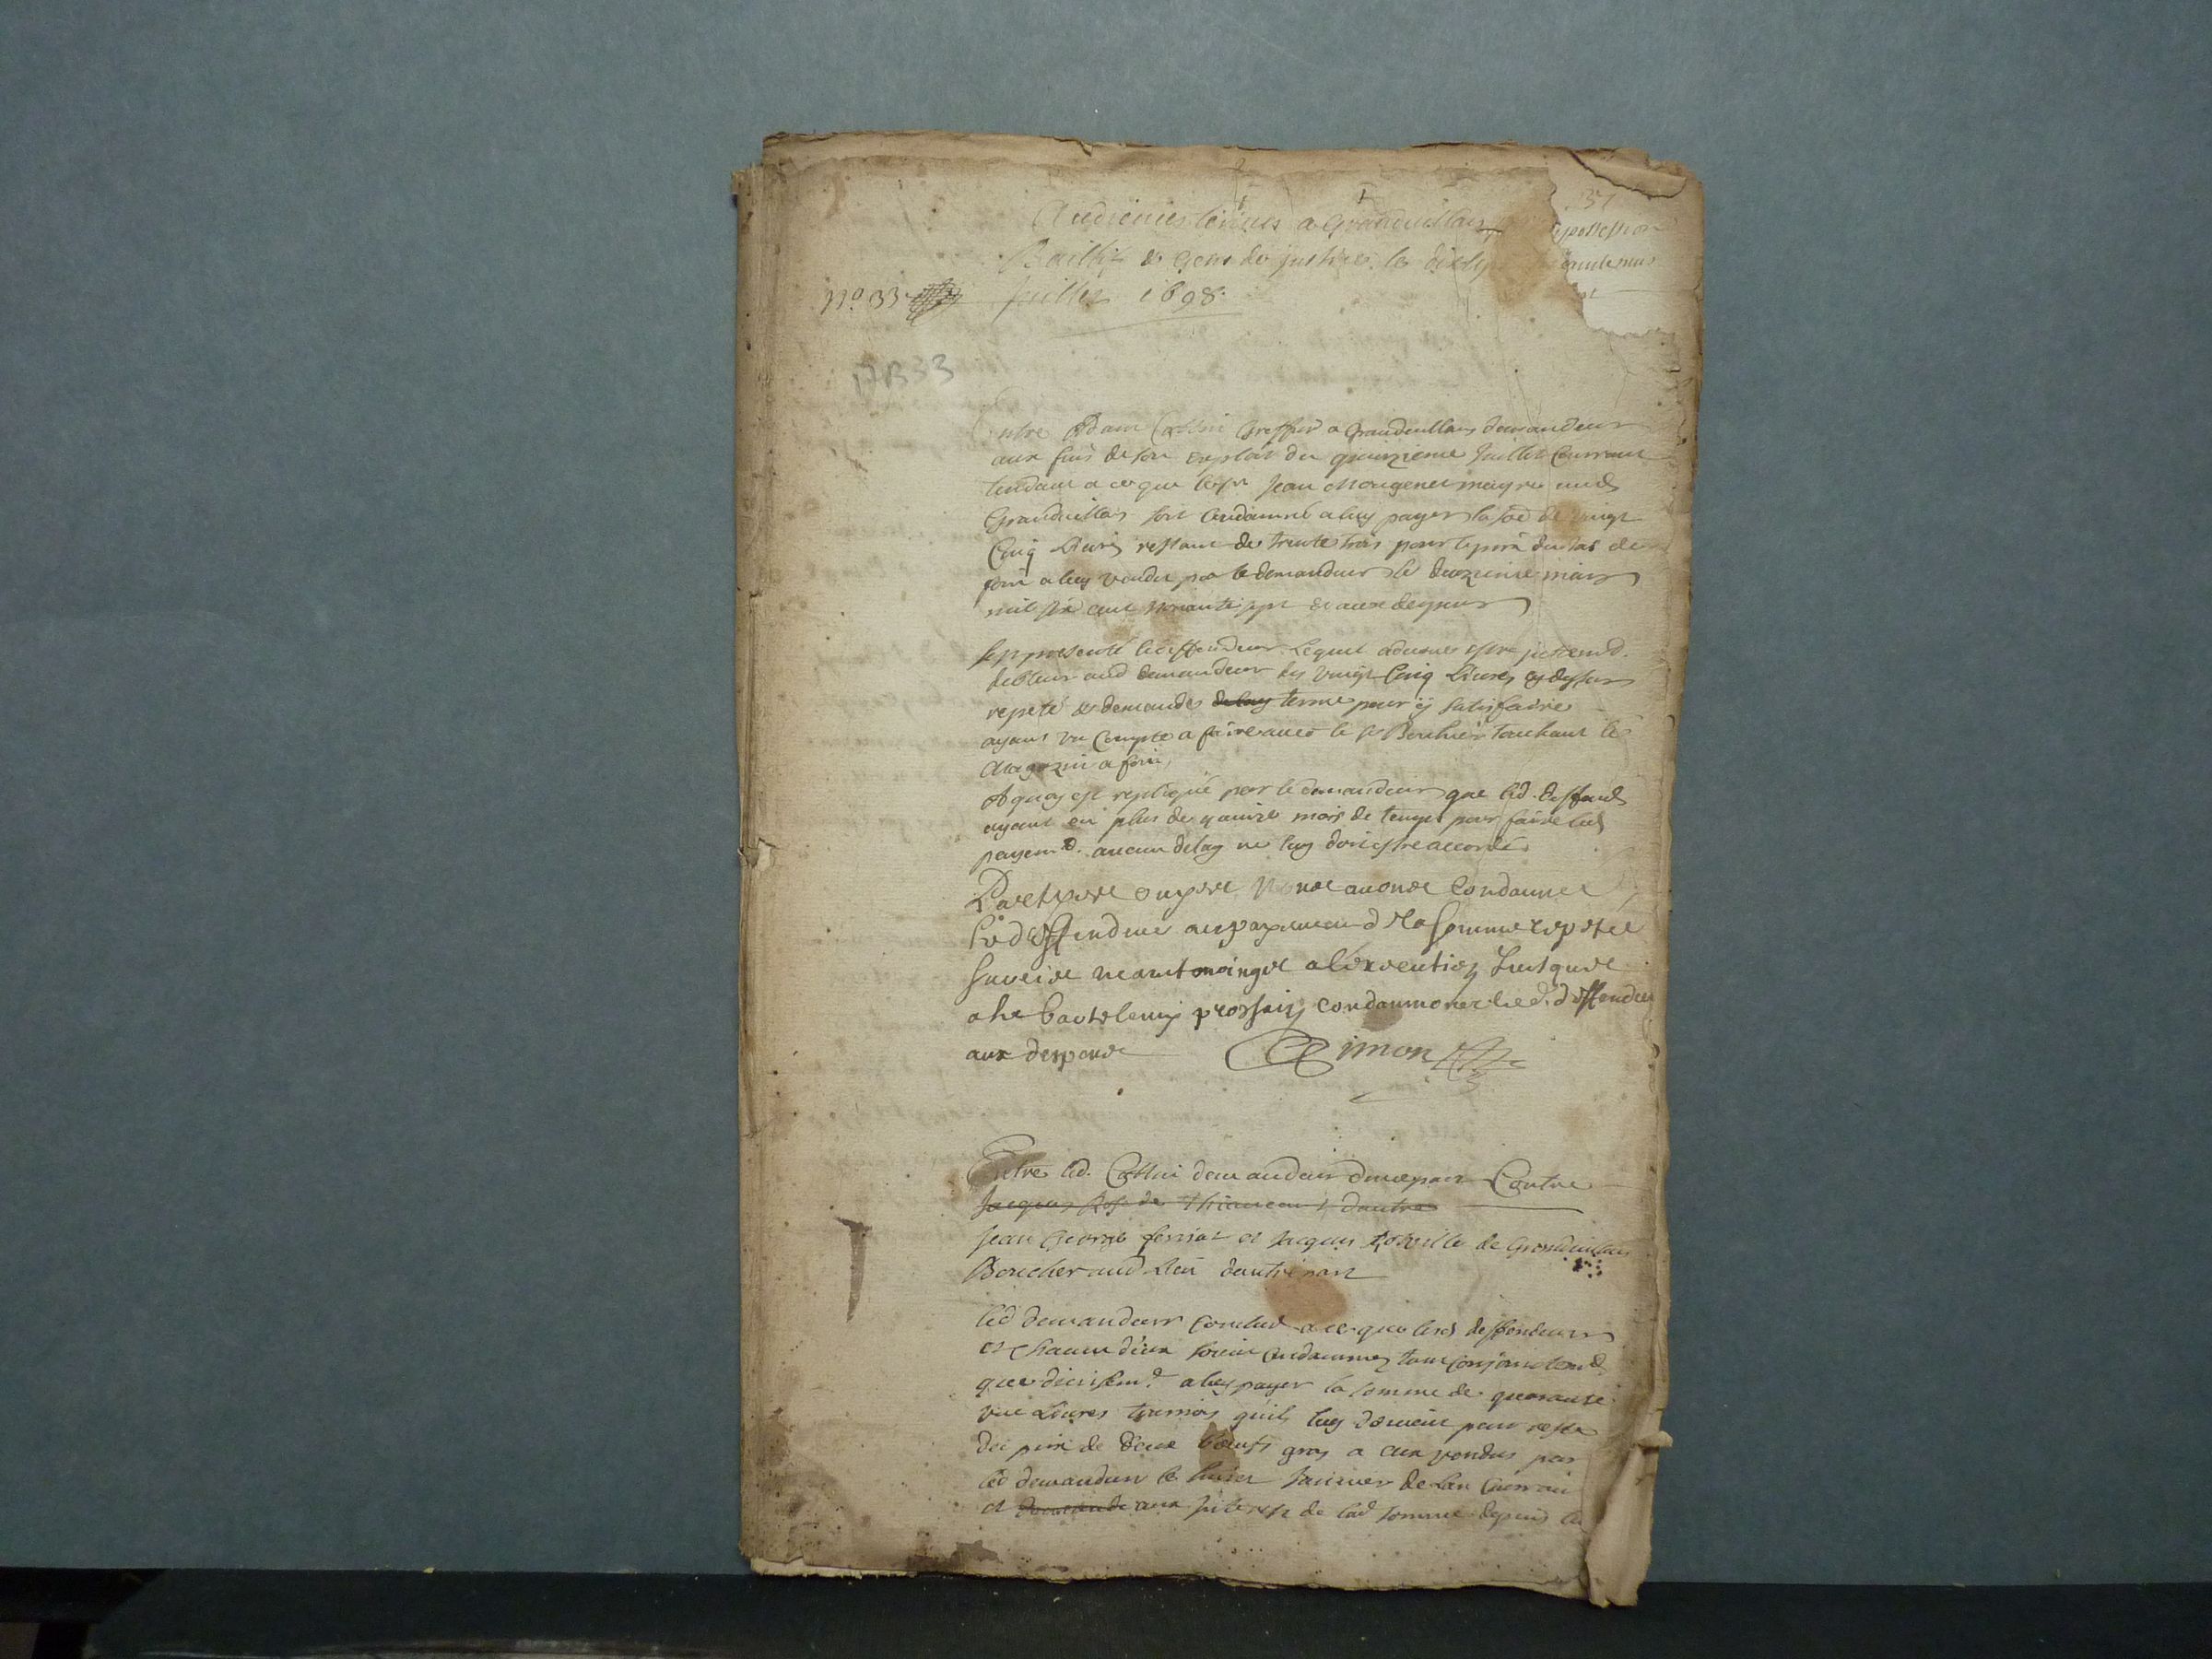 37
Audiences tenues a Grandvillars
possession
Baillif & gens de justice le
No. 33 Juillet 1698.
17B33
Entre Adam Cottin Greffier a Grandvillars demandeur
aux fins de son exploit du quinzieme Juillet Courrant
tendant a ce que Jean Mougenet mayre aud.
Grandvillars soit Condamné a luy payer la soe de vingt
Cinq Livres restant de trente trois pour le prix du tas de
foin a luy vendu par le demandeur le mars
mil six cent nonante sept & aux despens
Est presenté le deffendeur Lequel advoue estre justemt.
debteur aud demandeur des vingt Cinq Livres cy dessus
repeté & demande delay terme pour ÿ satisfaire
ayant un Compte a faire avec le Sr Bouhier touchant le
Magazin a foin,
A quoy est repliqué par le demandeur que led. deffend.
ayant eü plus de quinze mois de temps pour faire led.
payemt. aucun delay ne luy doit estre accordé.
Parties ouyes Nous avons Condamné
led deffendeur au payement de la somme repetée
surcise neantmoings a l'execution Jusques
a la bartelemy prossain condamnons led. deffendeur
aux despens Simon
Entre led. Cottin demandeur d'une part Contre
Jacques de Thiancourt d'autre
Jean George feriat et Jacques de Grandvillars
Boucher aud Lieu d'autre part
led demandeur Conclud a ce que lesd deffendeurs
et Chacun d'eux soient Condamnez tant Conjointemt.
que divisemt. a luy payer la somme de quarante
une Livres tournois qu'ils luy doivent pour reste
du prix de deux boeufs gras a eux vendus par
led demandeur le Janvier de l'an Courrant
et demande aux Interestz de lad somme depuis le